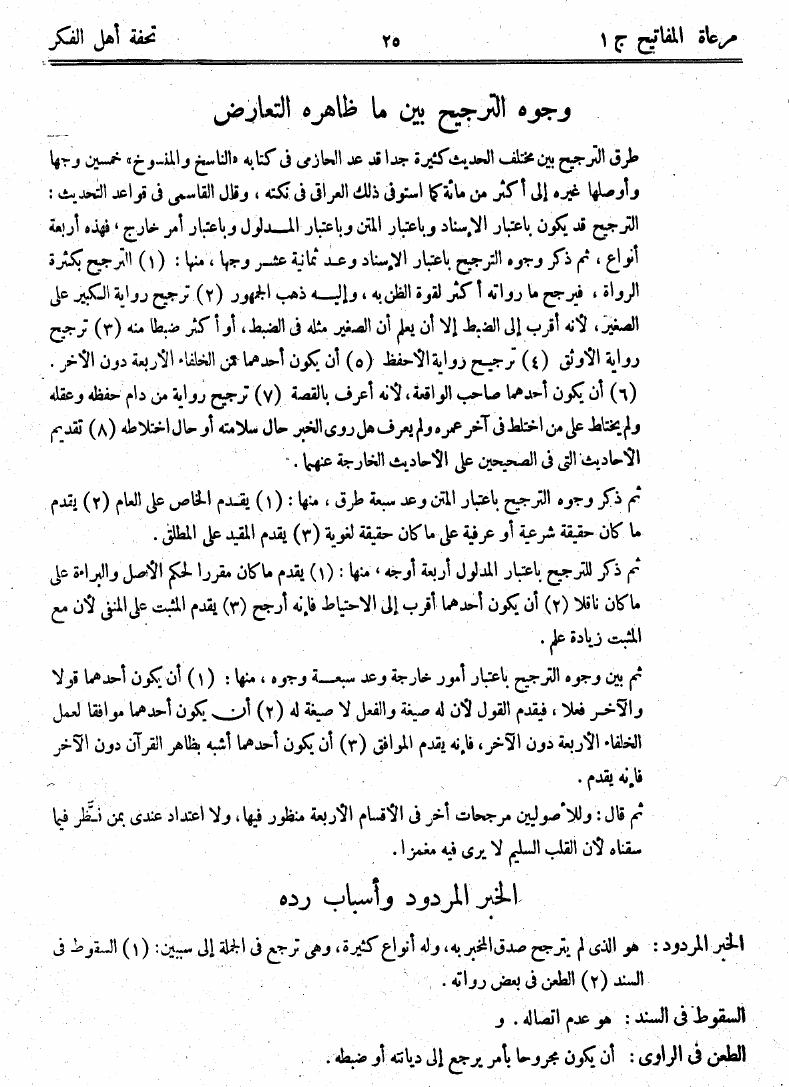 مرعاة المفاتيح ج ١ ٢٥ تحفة أهل الفكر
وجوه الترجيح بين ما ظاهره التعارض
طرق الترجيح بين مختلف الحديث كثيرة جدا قد عد الحازمى فى كتابه «الناسخ والمنسوخ» خمسين وجها
وأوصلها غيره إلى أكثر من مائة كما استوفى ذلك العراقى فى نكته ، وقال القاسمى فى قواعد التحديث :
الترجيح قد يكون باعتبار الإسناد وباعتبار المتن وباعتبار المدلول وباعتبار أمر خارج ، فهذه أربعة
أنواع ، ثم ذكر وجوه الترجيح باعتبار الإسناد وعد ثمانية عشر وجها ، منها : (١) الترجيح بكثرة
الرواة ، فيرجح ما رواته أكثر لقوة الظن به ، وإليه ذهب الجمهور (٢) ترجيح رواية الكبير على
الصغير، لأنه أقرب إلى الضبط إلا أن يعلم أن الصغير مثله فى الضبط، أو أكثر ضبطا منه (٣) ترجيح
رواية الأوثق (٤) ترجيح رواية الأحفظ (٥) أن يكون أحدهما من الخلفاء الأربعة دون الآخر .
(٦) أن يكون أحدهما صاحب الواقعة، لأنه أعرف بالقصة (٧) ترجيح رواية من دام حفظه وعقله
ولم يختلط على من اختلط فى آخر عمره ولم يعرف هل روى الخبر حال سلامته أو حال اختلاطه (٨) تقديم
الأحاديث التى فى الصحيحين على الأحاديث الخارجة عنهما .
ثم ذكر وجوه الترجيح باعتبار المتن وعد سبعة طرق ، منها : (١) يقدم الخاص على العام (٢) يقدم
ما كان حقيقة شرعية أو عرفية على ما كان حقيقة لغوية (٣) يقدم المقيد على المطلق .
ثم ذكر للترجيح باعتبار المدلول أربعة أوجه ، منها : (١) يقدم ما كان مقررا لحكم الأصل والبراءة على
ما كان ناقلا (٢) أن يكون أحدهما أقرب إلى الاحتياط فإنه أرجح (٣) يقدم المثبت على المنفى لأن مع
المثبت زيادة علم .
ثم بين وجوه الترجيح باعتبار أمور خارجة وعد سبعة وجوه ، منها : (١) أن يكون أحدهما قولا
والآخر فعلا ، فيقدم القول لأن له صيغة والفعل لا صيغة له (٢) أن يكون أحدهما موافقا لعمل
الخلفاء الأربعة دون الآخر، فإنه يقدم الموافق (٣) أن يكون أحدهما أشبه بظاهر القرآن دون الآخر
فإنه يقدم .
ثم قال : وللأصوليين مرجحات أخر فى الأقسام الأربعة منظور فيها، ولا اعتداد عندى بمن نظَّر فيما
سقناه لأن القلب السليم لا يرى فيه مغمزا .
الخبر المردود وأسباب رده
الخبر المردود : هو الذى لم يترجح صدق المخبر به، وله أنواع كثيرة، وهى ترجع فى الجملة إلى سببين : (١) السقوط فى
السند (٢) الطعن فى بعض رواته .
السقوط فى السند : هو عدم اتصاله . و
الطعن فى الراوى : أن يكون مجروحا بأمر يرجع إلى ديانته أو ضبطه .